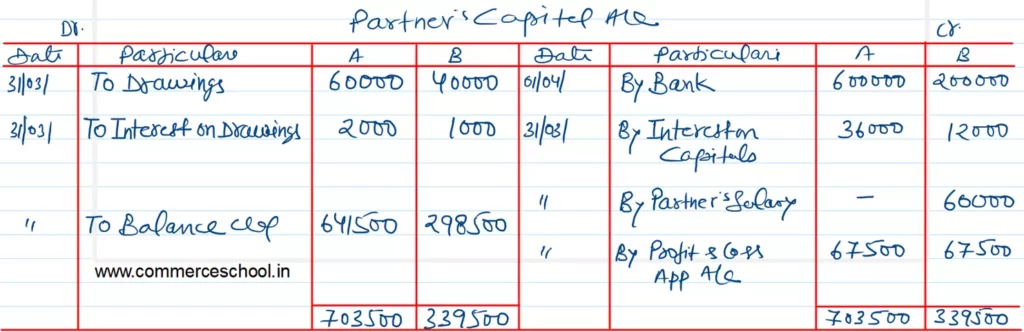 Partner's Capital A/c
Dr. Cr.
Date Particulars A B Date Particulars A B
31/03/ To Drawings 60000 40000 01/04/ By Bank 600000 200000
31/03/ To Interest on Drawings 2000 1000 31/03/ By Interest on 36000 12000
Capitals
" By Partner's Salary – 60000
" To Balance c/f 641500 298500
" By Profit & Loss 67500 67500
App A/c
www.commerceschool.in
703500 339500 703500 339500